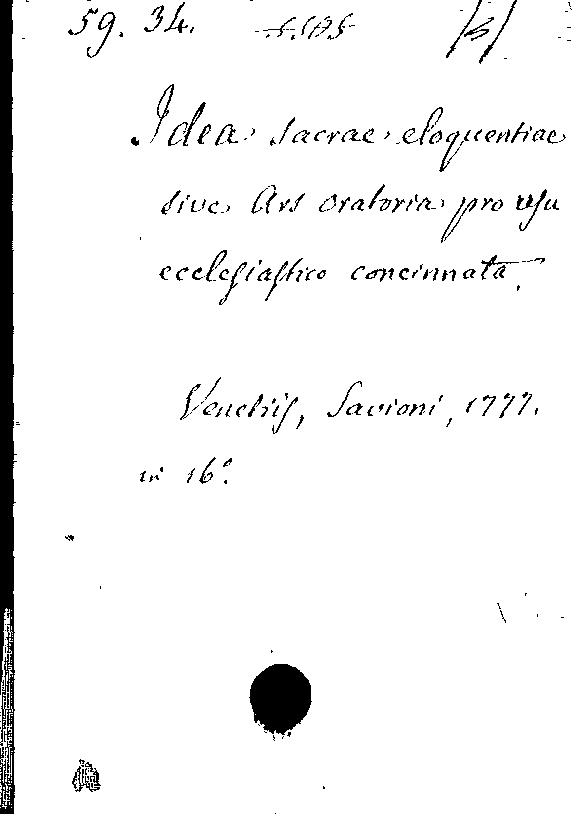 59. 34.
Idea sacrae eloquentiae
sive Ars oratoria pro usu
ecclesiastico concinnata.
Venetiis, Savioni, 1777.
in 16°.